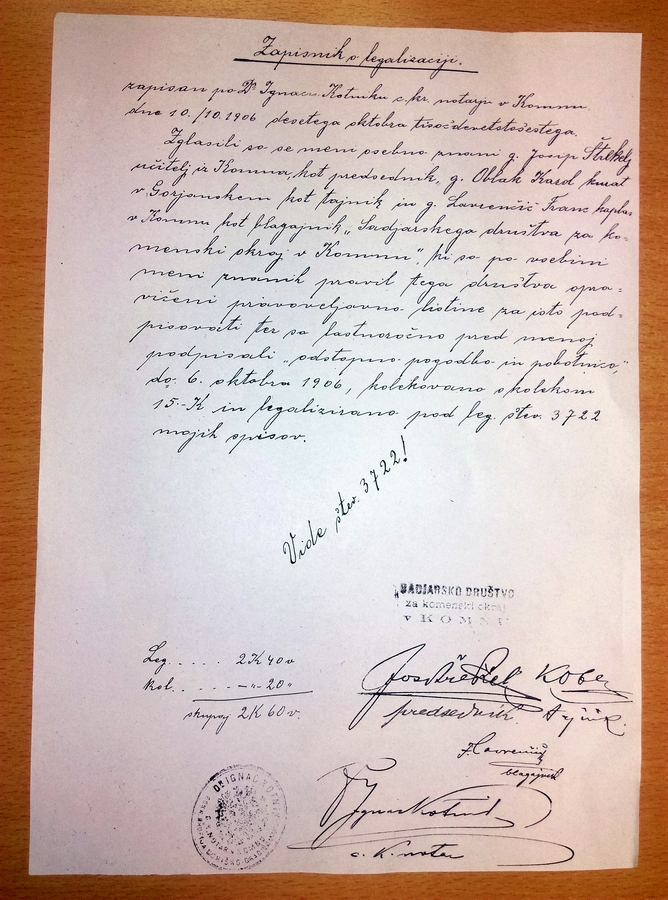 Zapisnik o legalizaciji.
zapisan po Dr Ignacu Kotniku c. kr. notarju v Komnu
dne 10./10.1906 desetega oktobra tisočdevetstošestega.
Zglasili so se meni osebno znani g. Josip Štrekelj
učitelj iz Komna, kot predsednik, g. Oblak Karol kurat
v Gorjanskem kot tajnik in g. Lavrenčič Franc kaplan
v Komnu kot blagajnik „Sadjarskega društva za ko-
menski okraj v Komnu", ki so po vsebini
meni znanih pravil tega društva opra-
vičeni pravoveljavno listine za isto pod-
pisovati ter so lastnoročno pred menoj
podpisali „odstopno pogodbo in pobotnico,"
do. 6. oktobra 1906, kolekovano s kolekom
15.-K in legalizirano pod leg. štev. 3722
mojih spisov.
Vide štev. 3722!
SADJARSKO DRUŠTVO
za komenski okraj
V KOMNU
Leg..... 2K 40v
Kol..... -"- 20"
skupaj 2K 60v.
Jos Štrekelj
predsednik
F. Lavrenčič
blagajnik
Dr Ignac Kotnik
c. K. notar
DR IGNAC KOTNIK